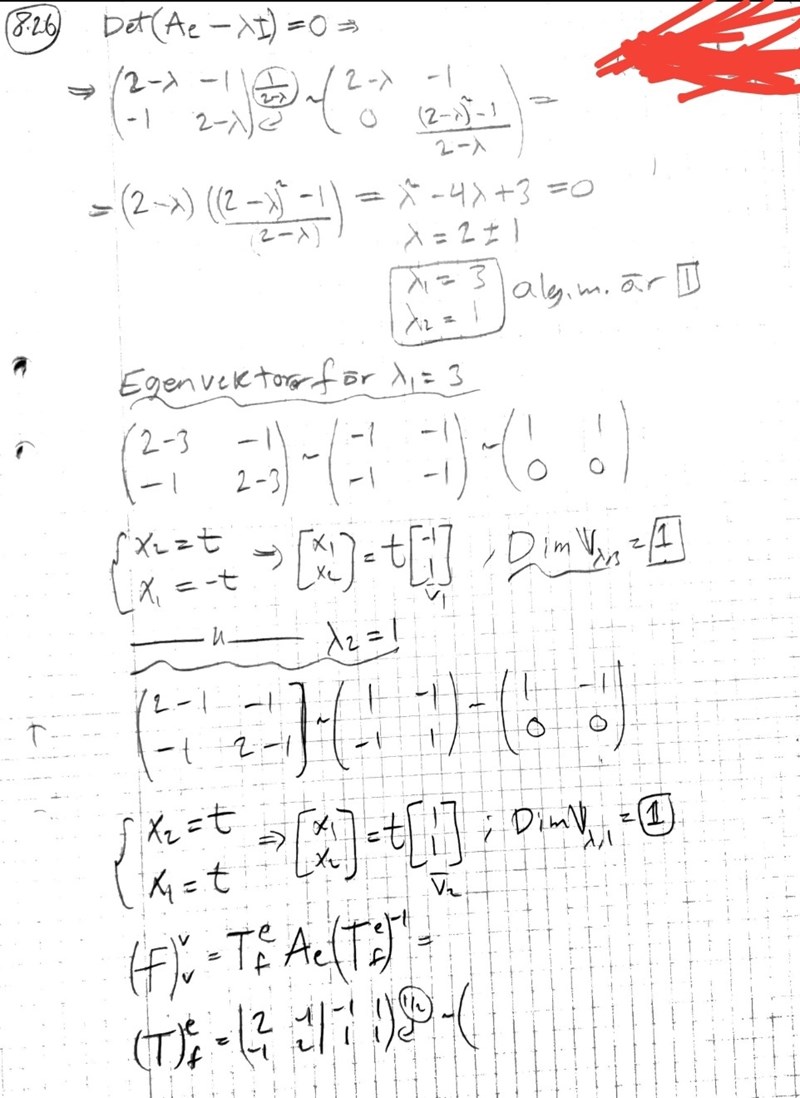 8.26 Det(Ae − λI) = 0 ⇒
⇒ (2-λ -1; -1 2-λ) (1/(2-λ)) ~ (2-λ -1; 0 ((2-λ)²-1)/(2-λ)) =
= (2-λ) (((2-λ)² -1)/(2-λ)) = λ² - 4λ + 3 = 0
λ = 2 ± 1
λ₁ = 3
λ₂ = 1
alg.m. är 1
Egenvektorer för λ₁ = 3
(2-3 -1; -1 2-3) ~ (-1 -1; -1 -1) ~ (1 1; 0 0)
{x₂ = t; x₁ = -t ⇒ [x₁; x₂] = t[-1; 1] v̄₁, Dim V_λ,3 = 1
—— 〃 —— λ₂ = 1
(2-1 -1; -1 2-1) ~ (1 -1; -1 1) ~ (1 -1; 0 0)
{x₂ = t; x₁ = t ⇒ [x₁; x₂] = t[1; 1] v̄₂; Dim V_λ,1 = 1
(f)ᵛᵥ = Tᵉ_f Ae (Tᵉ_f)⁻¹ =
(T)ᵉ_f = (2 -1 | -1 1; -1 2 | 1 1) (1/2) ~ (